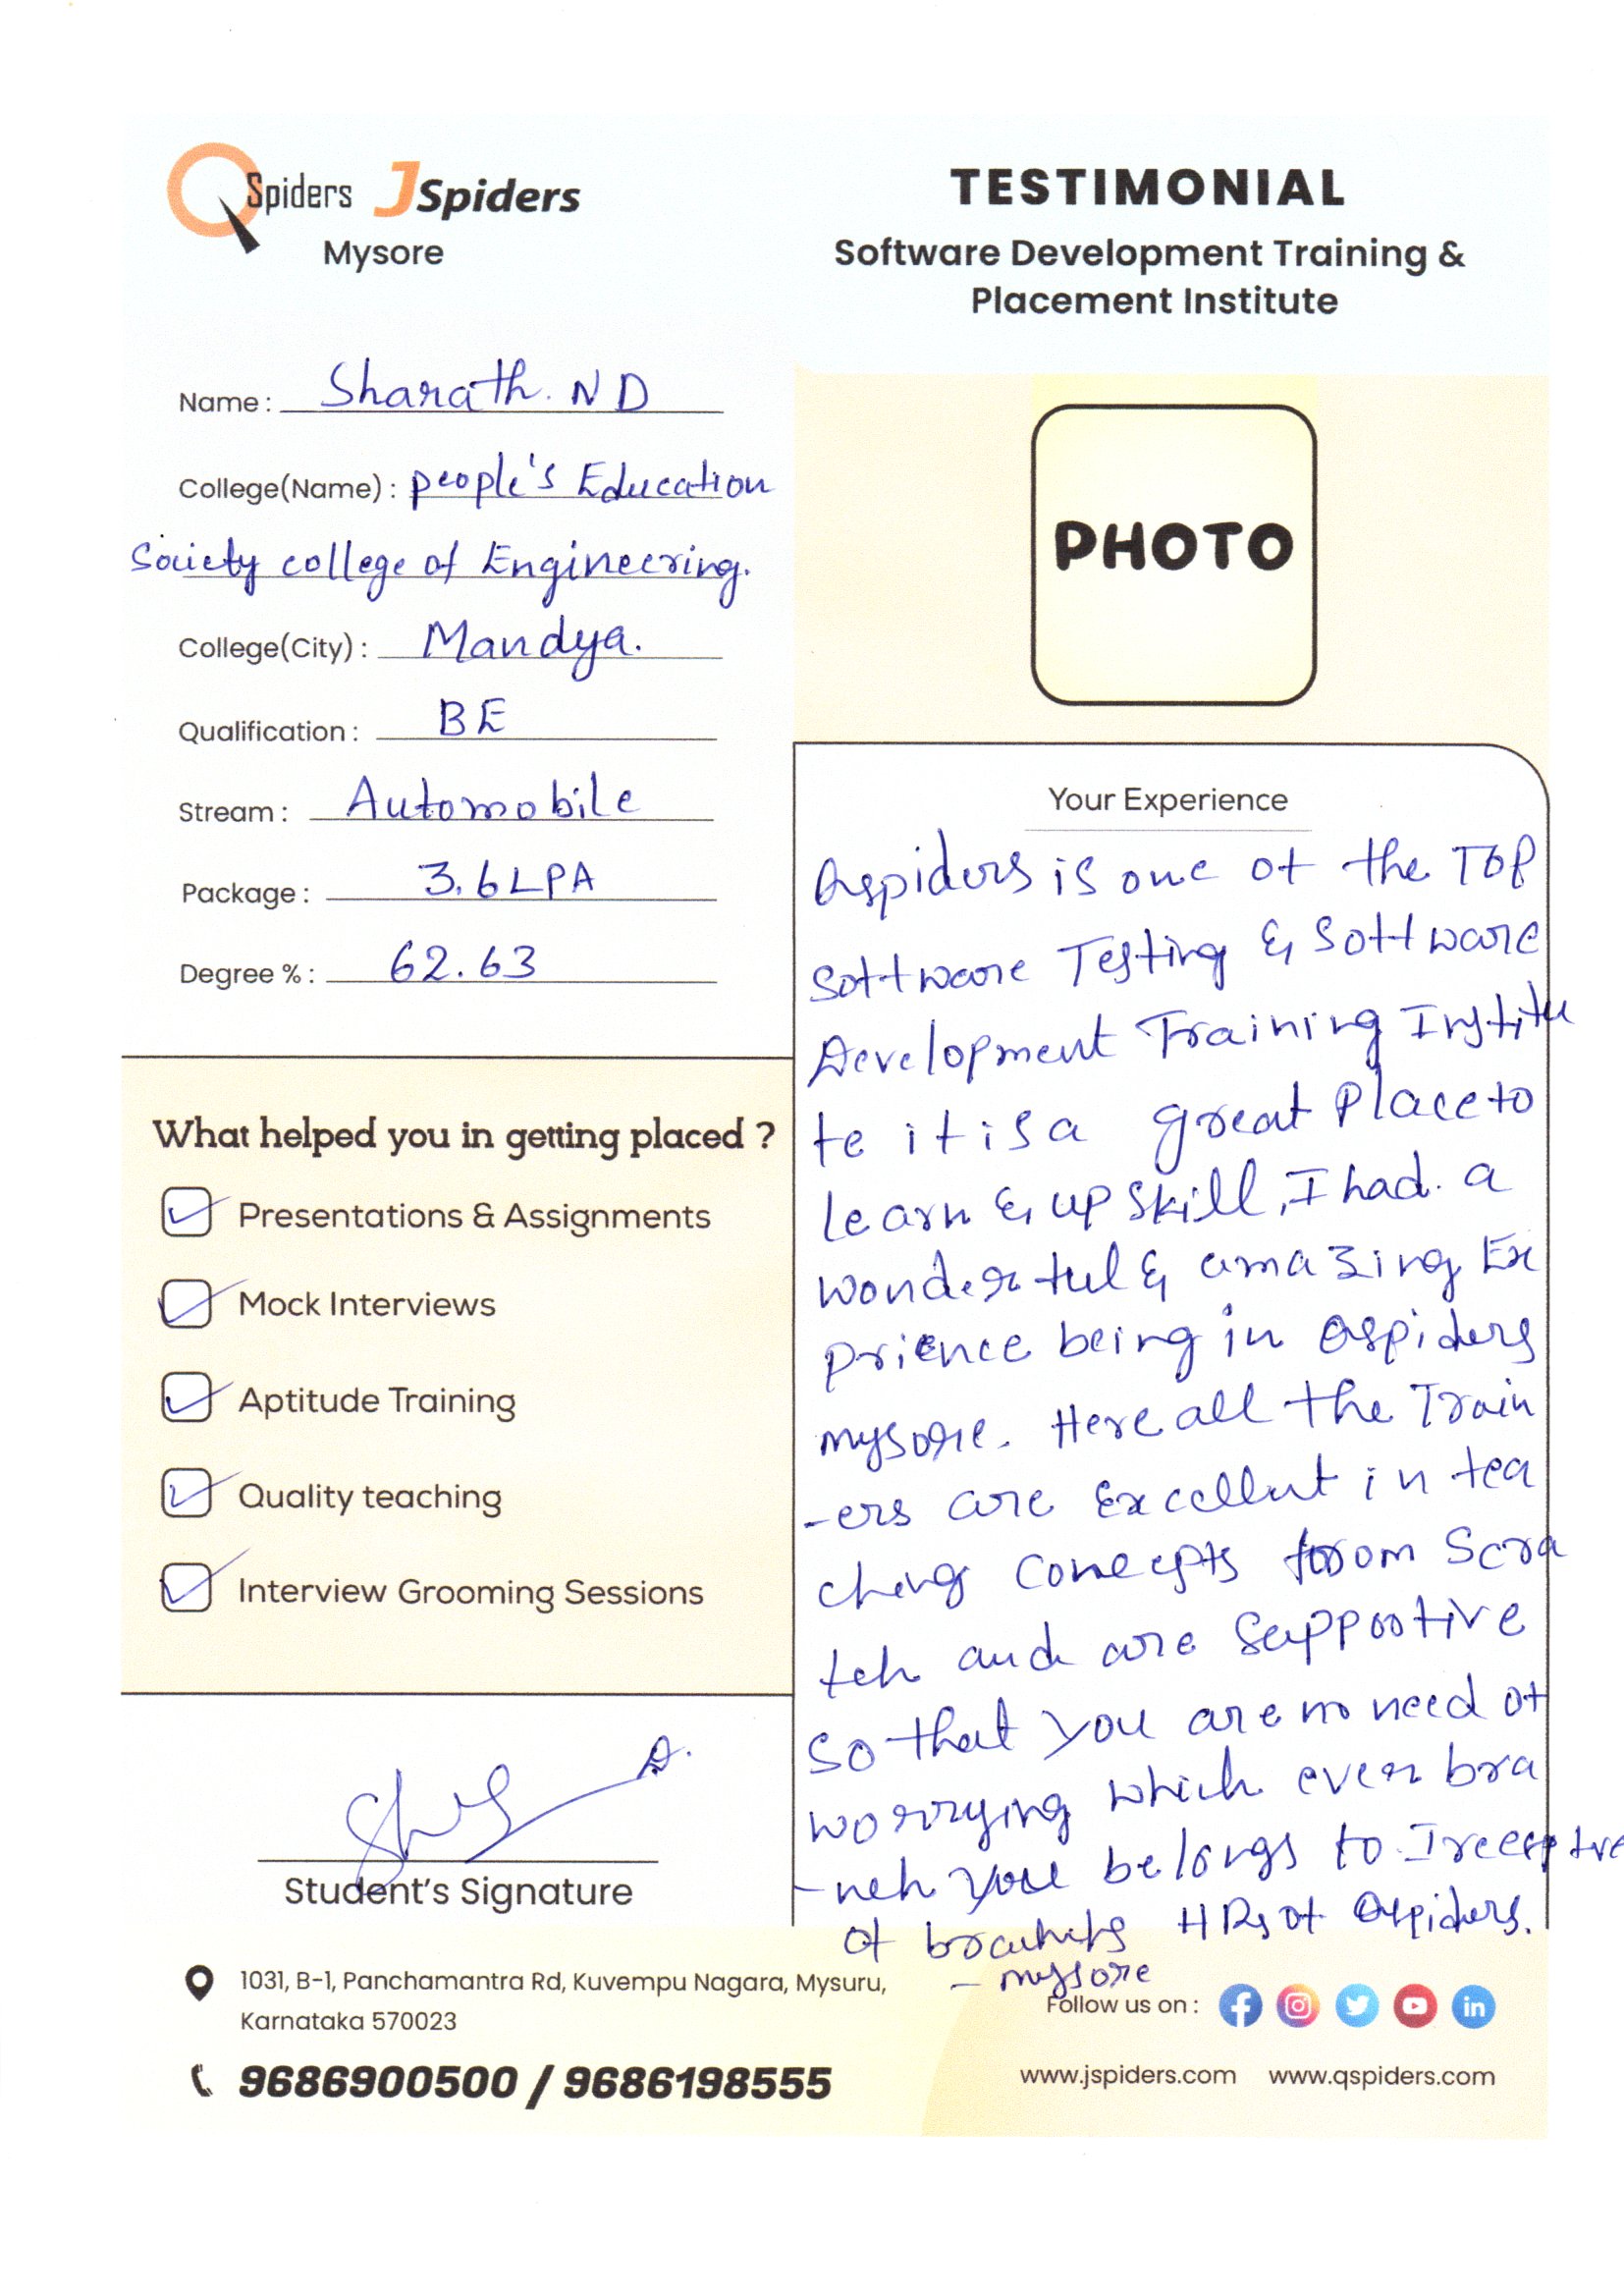 QSpiders JSpiders
Mysore
TESTIMONIAL
Software Development Training &
Placement Institute
Name : Sharath. N D
College(Name) : people's Education
Society college of Engineering.
College(City) : Mandya.
Qualification : BE
Stream : Automobile
Package : 3.6 LPA
Degree % : 62.63
What helped you in getting placed ?
Presentations & Assignments
Mock Interviews
Aptitude Training
Quality teaching
Interview Grooming Sessions
Student's Signature
PHOTO
Your Experience
Qspiders is one of the Top
Software Testing & Software
Development Training Institu
te it is a great Place to
learn & up skill, I had. a
wonderful & amazing Ex
prience being in Qspiders
mysore. Here all the Train
-ers are Excellent in tea
ching concepts from Scra
tch and are Supportive
So that you are no need of
worrying which ever bra
-nch you belongs to
of HRs of Qspiders.
- mysore
1031, B-1, Panchamantra Rd, Kuvempu Nagara, Mysuru,
Karnataka 570023
9686900500 / 9686198555
Follow us on :
www.jspiders.com www.qspiders.com